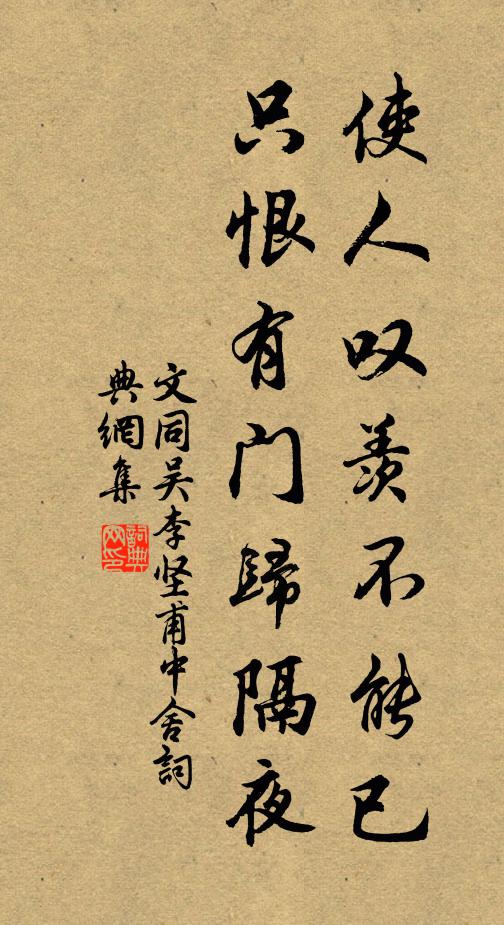 使人叹羡不能已
只恨有门歸隔夜
文同吴李坚甫中舍詞
典網集
詞典
网印